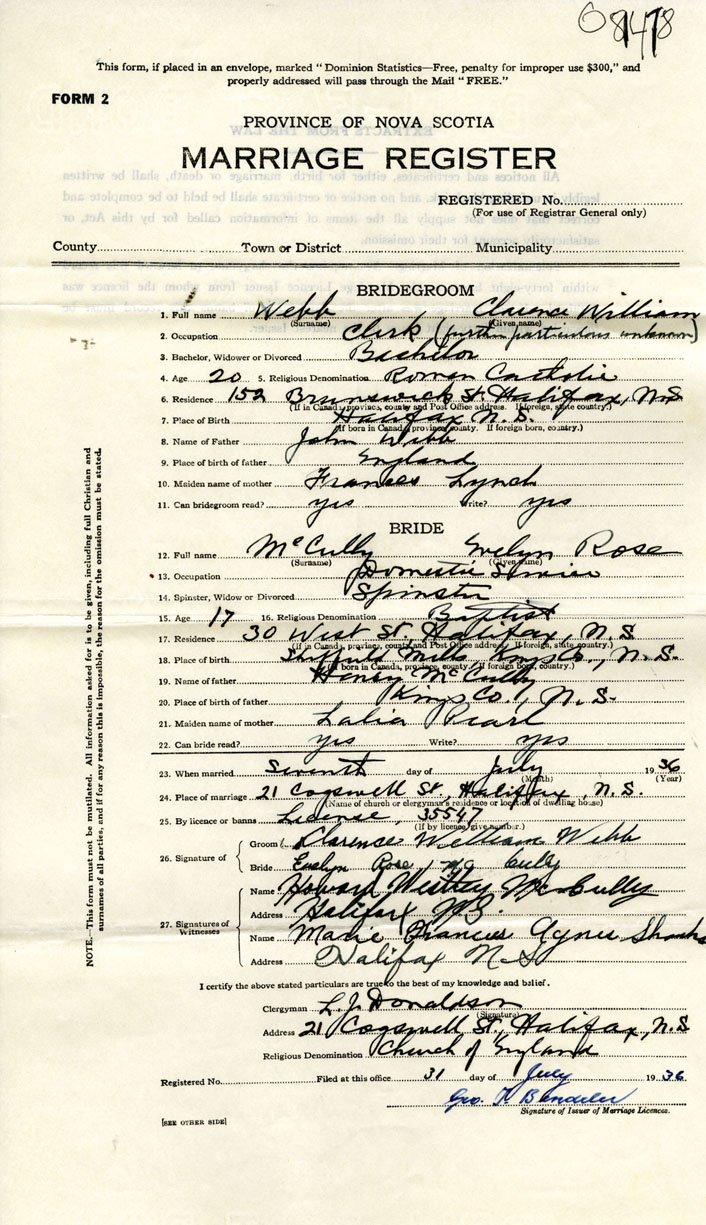 08478
This form, if placed in an envelope, marked "Dominion Statistics—Free, penalty for improper use $300," and
properly addressed will pass through the Mail "FREE."
FORM 2
PROVINCE OF NOVA SCOTIA
MARRIAGE REGISTER
REGISTERED No.
(For use of Registrar General only)
County Town or District Municipality
BRIDEGROOM
1. Full name Webb Clarence William
(Surname) (Given name)
2. Occupation Clerk (further particulars unknown)
3. Bachelor, Widower or Divorced Bachelor
4. Age 20 5. Religious Denomination Roman Catholic
6. Residence 152 Brunswick St. Halifax, N.S
(If in Canada, province, county and Post Office address. If foreign, state country.)
7. Place of Birth Halifax N.S.
(If born in Canada, province, county. If foreign born, country.)
8. Name of Father John Webb
9. Place of birth of father England
10. Maiden name of mother Frances Lynch
11. Can bridegroom read? yes Write? yes
BRIDE
12. Full name McCully Evelyn Rose
(Surname) (Given name)
13. Occupation Domestic Service
14. Spinster, Widow or Divorced Spinster
15. Age 17 16. Religious Denomination Baptist
17. Residence 30 West St, Halifax, N.S
(If in Canada, province, county and Post Office address. If foreign, state country.)
18. Place of birth Sheffield Mills Kings Co., N.S.
(If born in Canada, province, county. If foreign born, country.)
19. Name of father Henry McCully
20. Place of birth of father Kings Co, N.S.
21. Maiden name of mother Lalia Pearl
22. Can bride read? yes Write? yes
23. When married Seventh day of July 1936
(Month) (Year)
24. Place of marriage 21 Cogswell St., Halifax, N.S.
(Name of church or clergyman's residence or location of dwelling house)
25. By licence or banns License, 35547
(If by licence, give number.)
26. Signature of Groom Clarence William Webb
Bride Evelyn Rose McCully
27. Signatures of Witnesses
Name Howard Westley McCully
Address Halifax NS.
Name Marie Frances Agnes Shanks
Address Halifax N.S
I certify the above stated particulars are true to the best of my knowledge and belief.
Clergyman L. J. Donaldson
(Signature)
Address 21 Cogswell St., Halifax, N.S
Religious Denomination Church of England
Registered No. Filed at this office 31 day of July 1936
Geo.
Signature of Issuer of Marriage Licences.
[SEE OTHER SIDE]
NOTE.—This form must not be mutilated. All information asked for is to be given, including full Christian and
surnames of all parties, and if for any reason this is impossible, the reason for the omission must be stated.